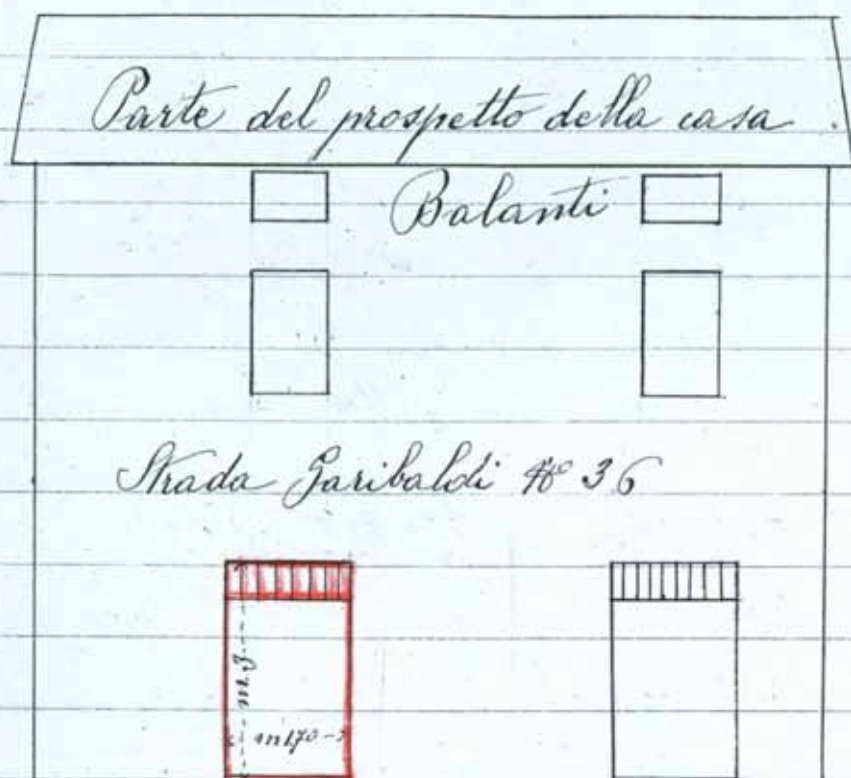 Parte del prospetto della casa
Balanti
Strada Garibaldi No 36
m 3
m 1.70